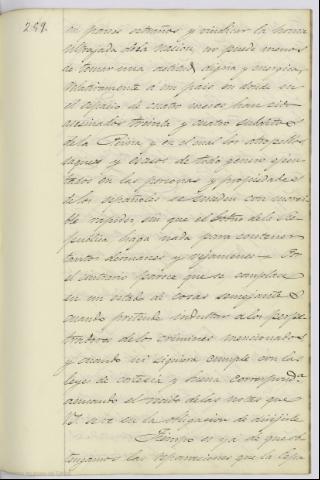 229.
en paises estraños y vindicar la honra
ultrajada de la nacion, no puede menos
de tomar una actitud digna y energica
relativamente a un pais en donde en
el espacio de cuatro meses han sido
asesinados treinta y cuatro subditos
de la Reina y en el cual los atropellos
saqueos y excesos de todo genero ejecu-
tados en las personas y propiedades
de los españoles se suceden con
rapidez, sin que el Gobno. de la Re-
publica haga nada para contener
tantos desmanes y vejaciones – Por
el contrario parece que se complace
en un estado de cosas semejante
cuando pretende indultar a los perpe-
tradores de los crimenes mencionados
y cuando ni siquiera cumple con las
leyes de cortesia y buena correspond.a
acusando el recibo de las notas que
V. se ve en la obligacion de dirijirle
Tiempo es ya de que ob-
tengamos las reparaciones que la